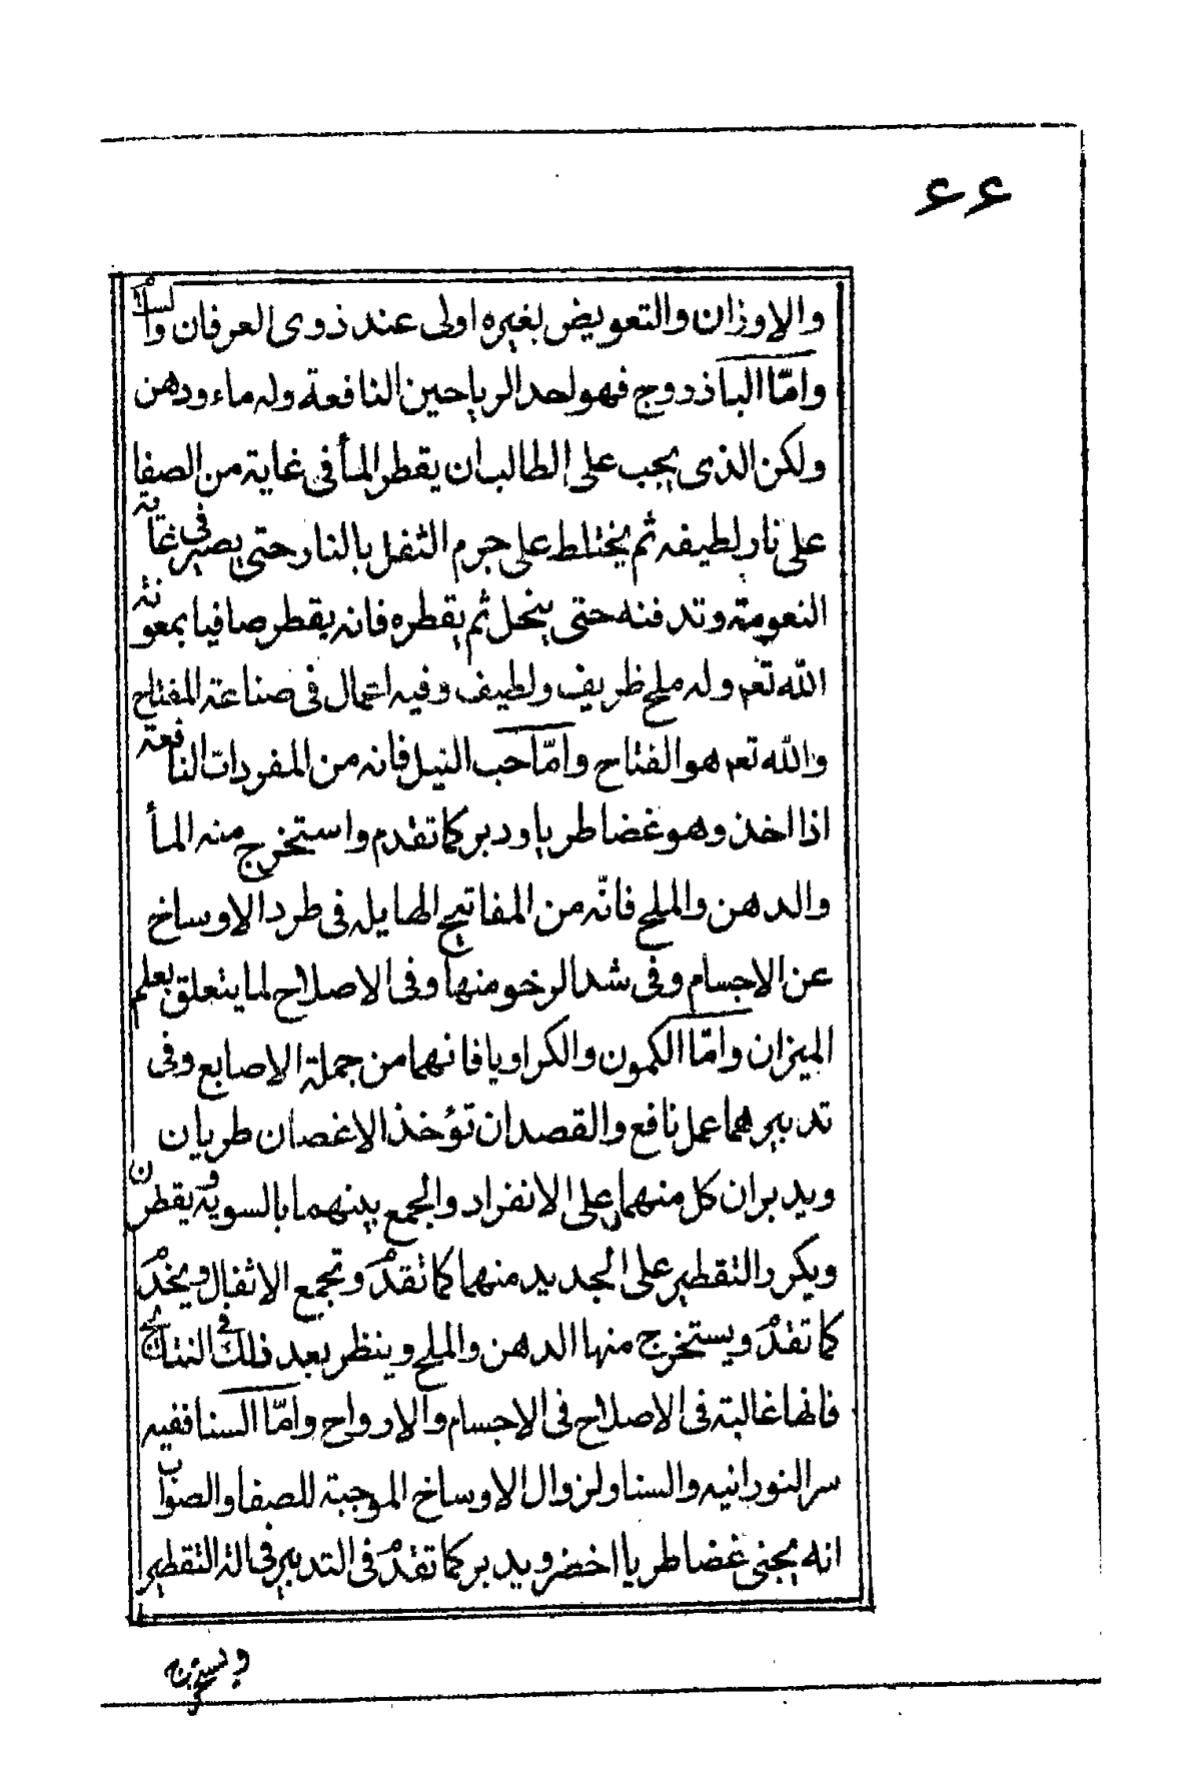 ۶۶
والاوزان والتعويض بغيره اولى عند ذوى العرفان والسلامْ
وامّا الباذروج فهو احد الرياحين النافعة وله ماء ودهن
ولكن الذى يجب على الطالب ان يقطر المأ فى غاية من الصفا
على نار لطيفه ثم يختلط على جرم الثفل بالنار حتى يصير فى غاية
النعومة وتدفنه حتى ينحل ثم يقطره فانه يقطر صافيا بمعونة
الله تعم وله ملح ظريف ولطيف وفيه اعمال فى صناعة المفتاح
والله تعم هو الفتاح وامّا حب النيل فانه من المفردات النافعة
اذا اخذ وهو غضا طريا ودبر كما تقدم واستخرج منه المأ
والدهن والملح فانّه من المفاتيح الهايله فى طرد الاوساخ
عن الاجسام وفى شد الرخو منها وفى الاصلاح لما يتعلق بعلم
الميزان وامّا الكمون والكراويا فانهما من جملة الاصابع وفى
تدبيرهما عمل نافع والقصد ان تؤخذ الاغصان طريان
ويدبران كل منهما على الانفراد والجمع بينهما بالسوية ويقطرن
ويكرر التقطير على الجديد منهما كما تقدمْ وتجمع الاثفال ويخدمْ
كما تقدمْ ويستخرج منها الدهن والملح وينظر بعد ذلك فى النتائج
فانها غالبة فى الاصلاح فى الاجسام والارواح وامّا السنا ففيه
سر النورانيه والسنا ولزوال الاوساخ الموجبة للصفا والصواب
انه يجنى غضا طريا اخضر ويدبر كما تقدمْ فى التدبير فى الة التقطير
ويستخرج